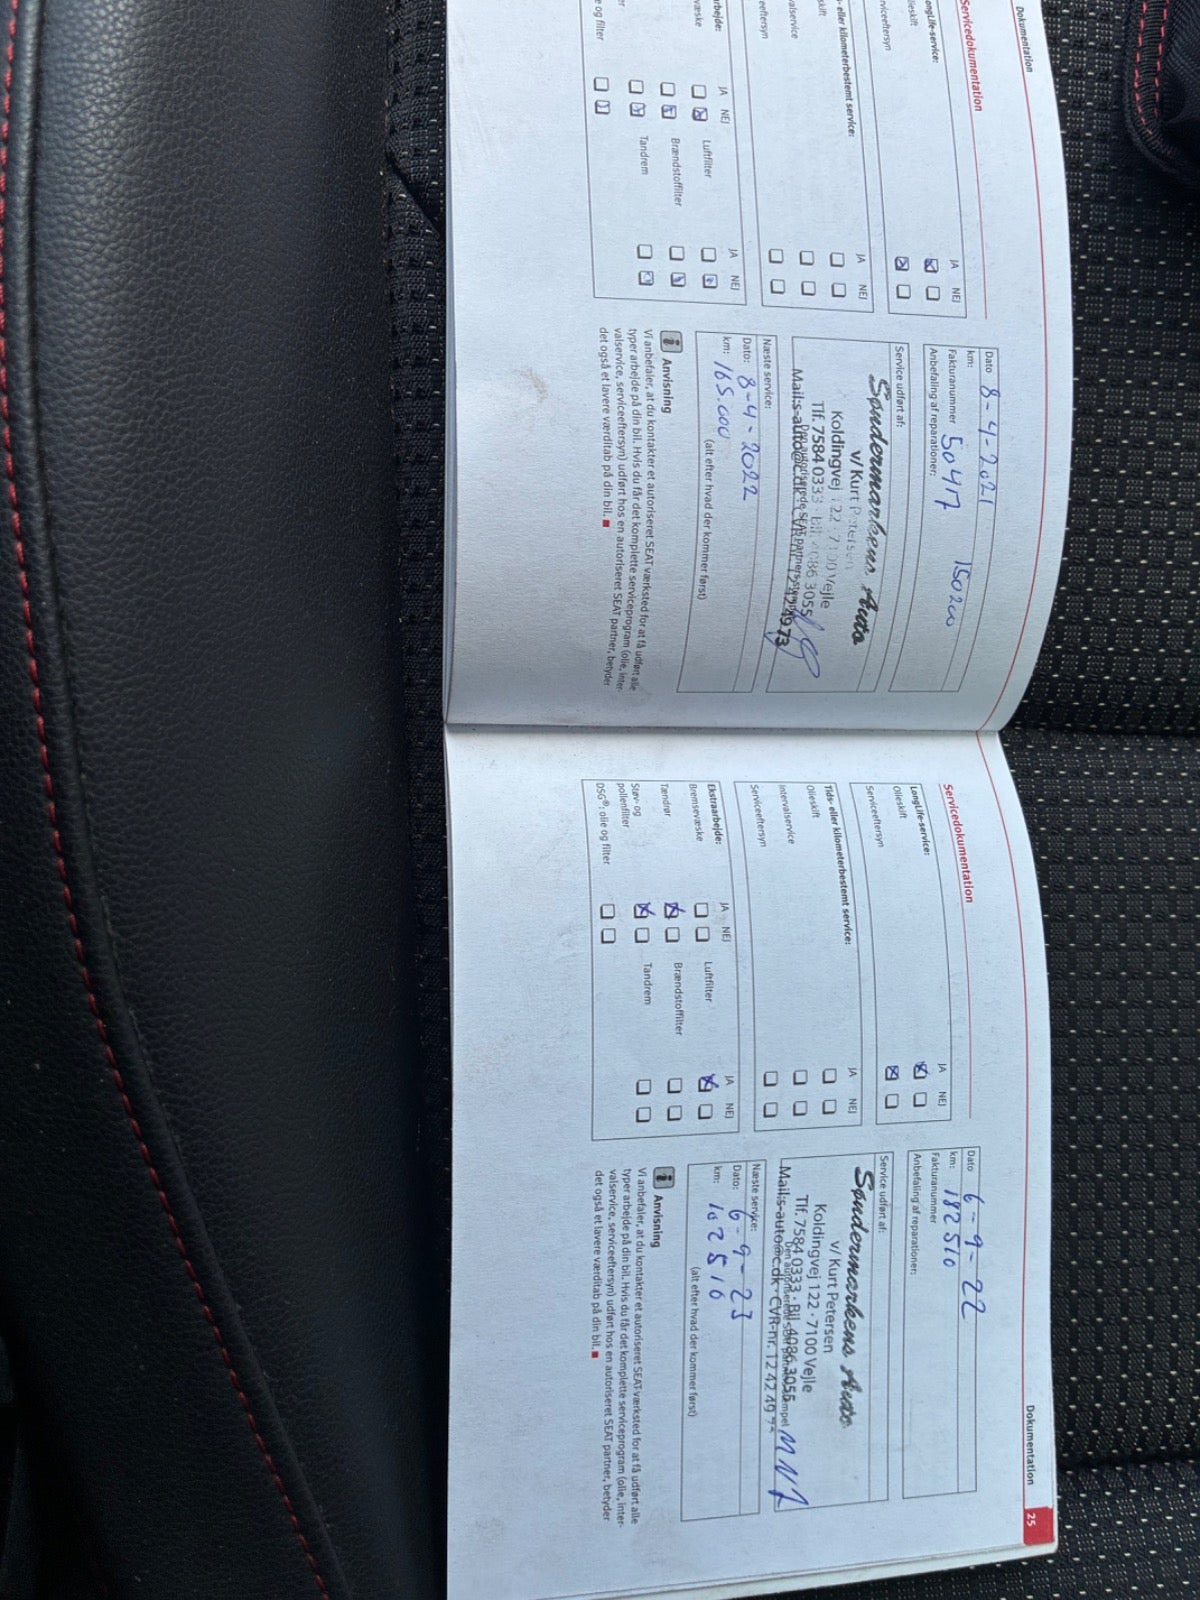 Dokumentation
Servicedokumentation
ongLife-service:
lieskift
rviceeftersyn
JA NEJ
s- eller kilometerbestemt service:
skift
valservice
eeftersyn
JA NEJ
rbejde:
væske
er
e og filter
JA NEJ
Luftfilter
Brændstoffilter
Tandrem
JA NEJ
Dato 8-4-2021
km: 150200
Fakturanummer 50417
Anbefaling af reparationer:
Service udført af:
Søndermarkens Auto
v/ Kurt Petersen
Koldingvej 122 · 7100 Vejle
Tlf. 7584 0333 · Bil 4086 3055
Den autoriserede SEAT partners stempel
Mail:s-auto@c.dk · CVR-nr. 12 42 49 73
Næste service:
Dato: 8-4-2022
km: 165.000
(alt efter hvad der kommer først)
Anvisning
Vi anbefaler, at du kontakter et autoriseret SEAT værksted for at få udført alle
typer arbejde på din bil. Hvis du får det komplette serviceprogram (olie, inter-
valservice, serviceeftersyn) udført hos en autoriseret SEAT partner, betyder
det også et lavere værditab på din bil.
Dokumentation 25
Servicedokumentation
LongLife-service:
Olieskift
Serviceeftersyn
JA NEJ
Tids- eller kilometerbestemt service:
Olieskift
Intervalservice
Serviceeftersyn
JA NEJ
Ekstraarbejde:
Bremsevæske
Tændrør
Støv- og
pollenfilter
DSG®: olie og filter
JA NEJ
Luftfilter
Brændstoffilter
Tandrem
JA NEJ
Dato 6-9-22
km: 182510
Fakturanummer
Anbefaling af reparationer:
Service udført af:
Søndermarkens Auto
v/ Kurt Petersen
Koldingvej 122 · 7100 Vejle
Tlf. 7584 0333 · Bil 4086 3055
Mail:s-auto@c.dk · CVR-nr. 12 42 49
Næste service:
Dato: 6-9-23
km:
(alt efter hvad der kommer først)
Anvisning
Vi anbefaler, at du kontakter et autoriseret SEAT værksted for at få udført alle
typer arbejde på din bil. Hvis du får det komplette serviceprogram (olie, inter-
valservice, serviceeftersyn) udført hos en autoriseret SEAT partner, betyder
det også et lavere værditab på din bil.